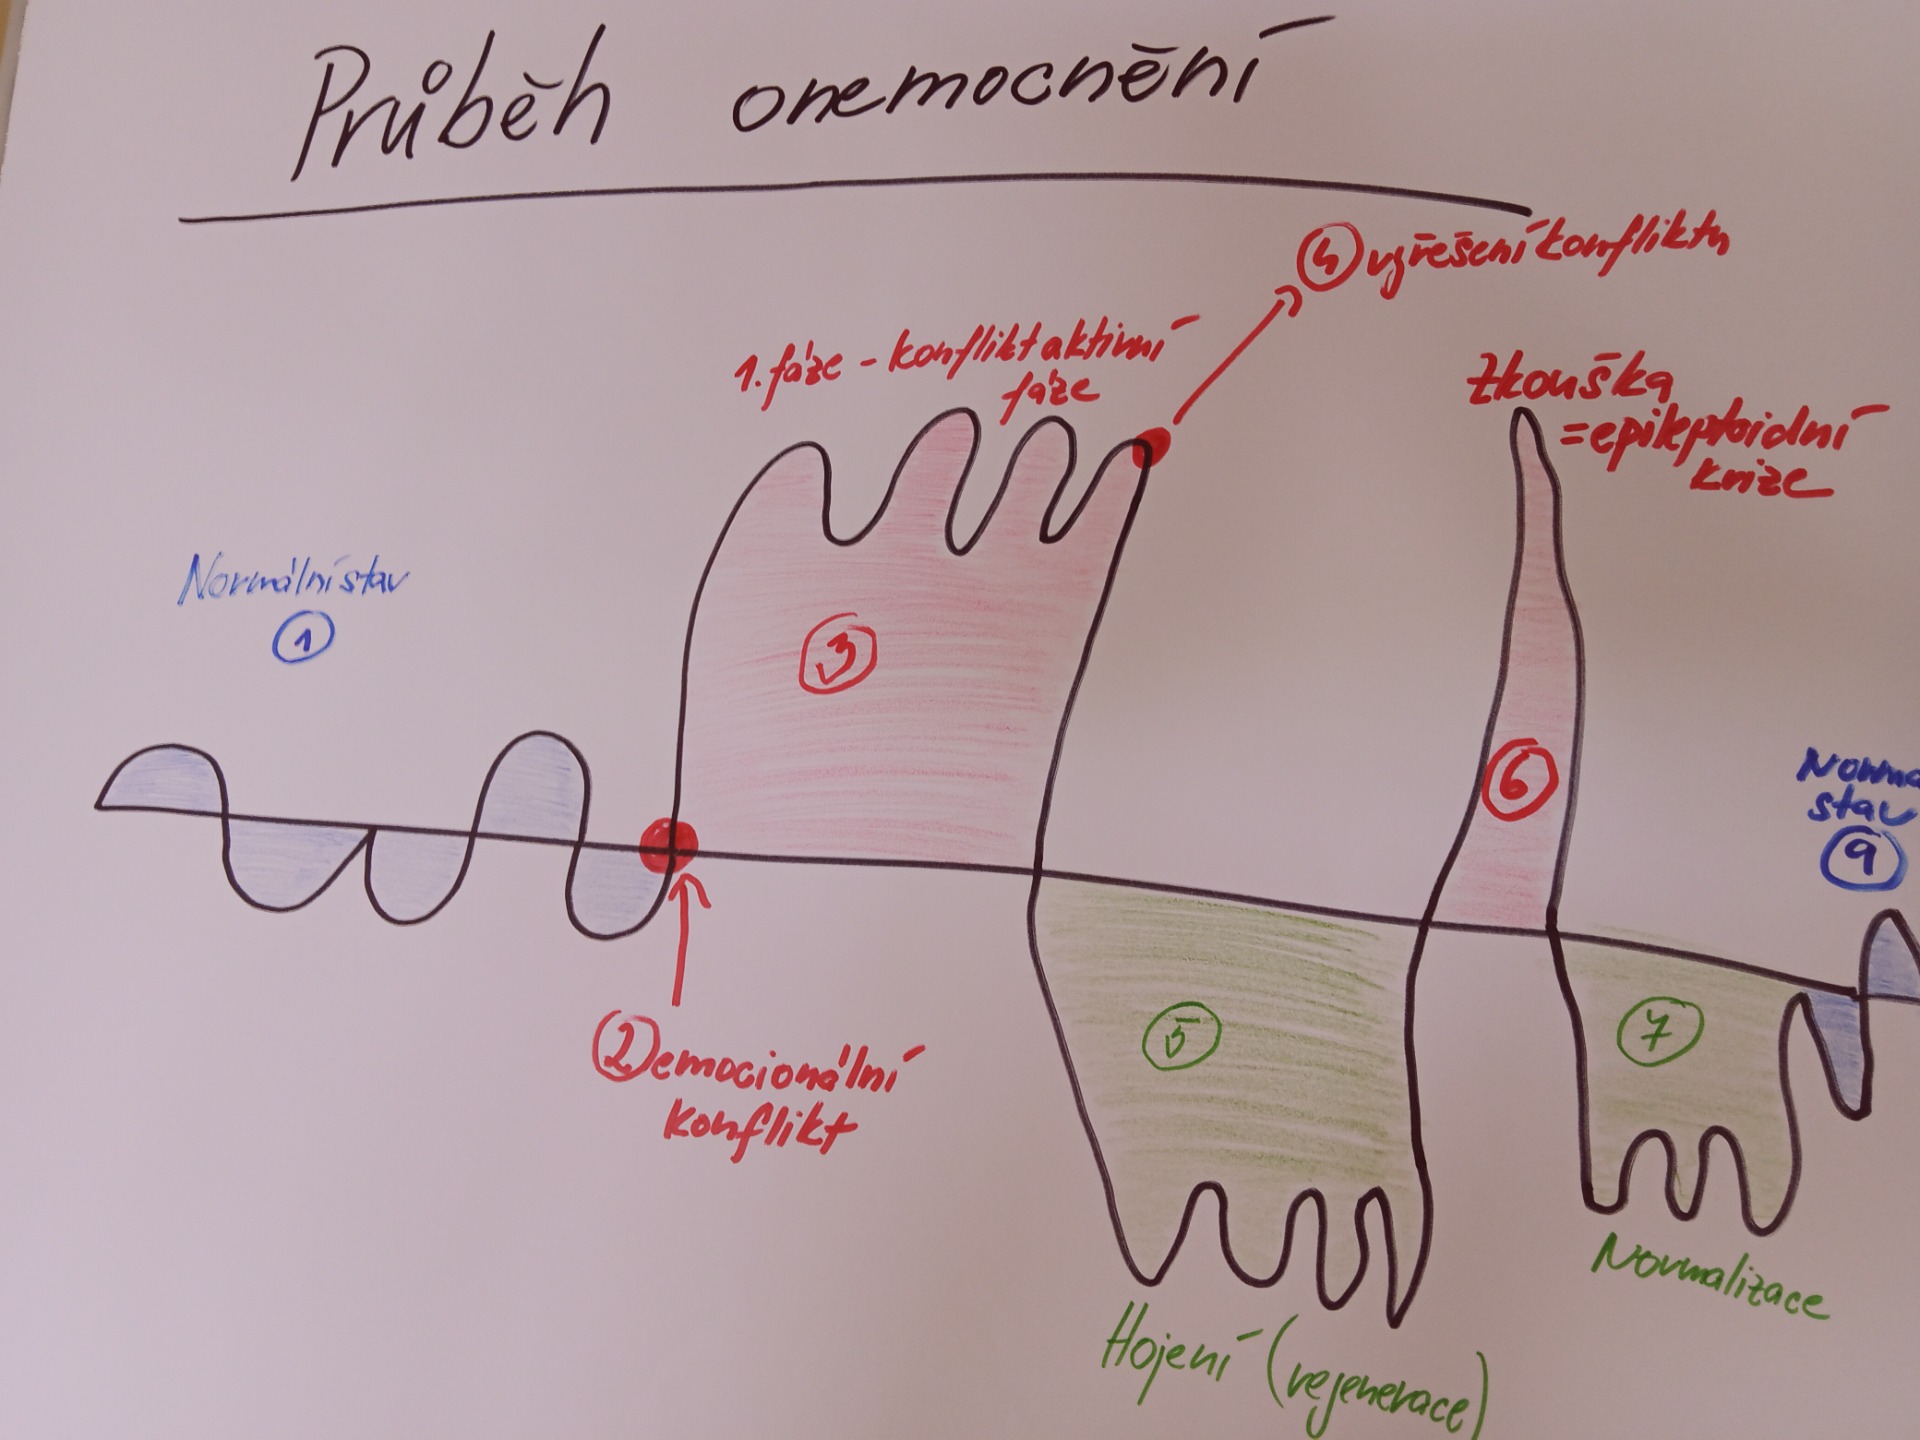 Průběh onemocnění
4 vyřešení konfliktu
1. fáze - konflikt aktivní
fáze
Zkouška
= epileptoidní
krize
Normální stav
1
3
6
Norma
stav
9
2 emocionální
konflikt
5
7
Normalizace
Hojení (regenerace)